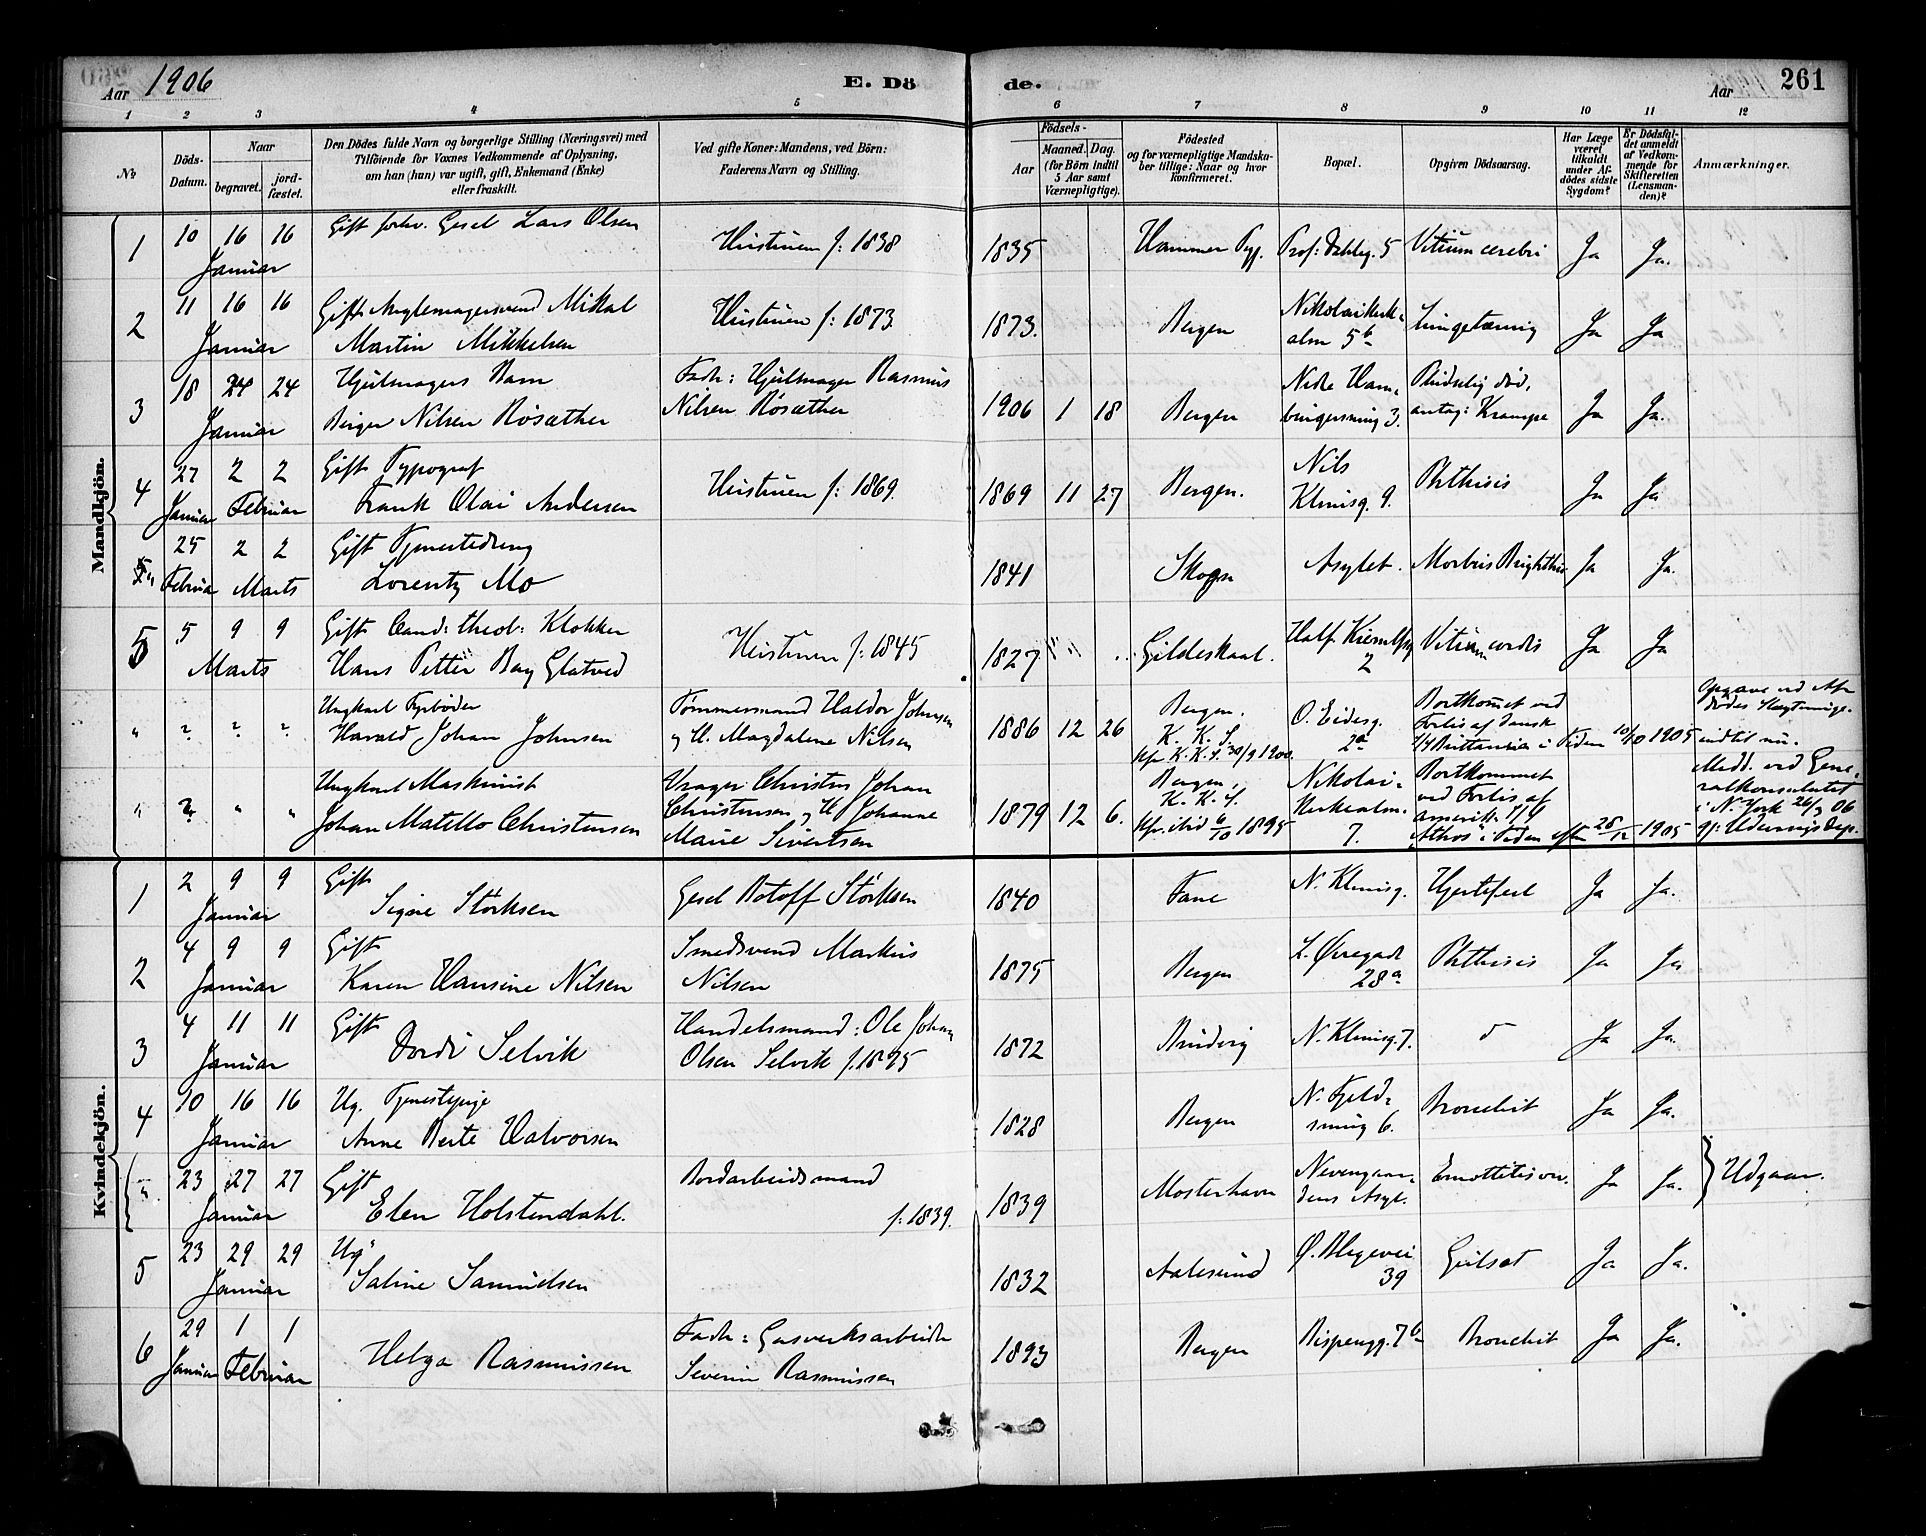 Aar 1906
E. Dö
de.
Aar
261
1 2 3 4 5 6 7 8 9 10 11 12
No
Döds-Datum.
Naar
begravet.
jord-fæstet.
Den Dödes fulde Navn og borgerlige Stilling (Næringsvei) med
Tilföiende for Voxnes Vedkommende af Oplysning,
om han (hun) var ugift, gift, Enkemand (Enke)
eller fraskilt.
Ved gifte Koner: Mandens, ved Börn:
Faderens Navn og Stilling.
Födsels-
Aar
Maaned. Dag.
(for Börn indtil
5 Aar samt
Værnepligtige).
Födested
og for værnepligtige Mandska-
ber tillige: Naar og hvor
konfirmeret.
Bopæl.
Opgiven Dödsaarsag.
Har Læge
været
tilkaldt
under Af-
dödes sidste
Sygdom?
Er Dödsfal-
det anmeldt
af Vedkom-
mende for
Skifteretten
(Lensman-
den)?
Anmærkninger.
Mandkjön.
1 10 16 16 Januar
Gift forhv. Gesel Lars Olsen
Hustruen f: 1838
1835
Hammer Pgj.
Prof: Dahlsg. 5
Vitium cerebri
Ja Ja.
2 11 16 16 Januar
Gift Nøglemagersvend Mikal
Martin Mikkelsen
Hustruen f: 1873.
1873.
Bergen
Nikolaikirke-
alm 5b
Lungetæring
Ja Ja
3 18 24 24 Januar
Hjulmagers Barn
Birger Nilsen Rösæther
Fadr: Hjulmager Rasmus
Nilsen Rösæther
1906 1 18
Bergen
Nedre Ham-
burgersmug 3.
Pludselig död,
antag: Krampe
Ja Ja.
4 27 2 2
Januar Februar
Gift Typograf
Frank Olai Andersen
Hustruen f: 1869.
1869 11 27
Bergen.
Nils
Klimsg. 9.
Phthisis
Ja Ja
25 2 2
Februar Marts
Gift Tjenestedreng
Lorentz Mo
1841
Skogn
Asylet.
Morbus Brightii
Ja Ja.
5 5 9 9
Marts
Gift Cand: theol: Klokker
Hans Petter Bay Glatved
Hustruen f: 1845
1827
Gildeskaal.
Half. Kjerulfsg
2
Vitium cordis
Ja Ja
" ? ? ?
Ungkarl Fyrböder
Harald Johan Johnsen
Tömmermand Haldor Johnsen
og H. Magdalene Nilsen
1886 12 26
Bergen.
K. K. S.
Kfr K. K. S. 30/9 1900.
O. Eidesg.
2a
Bortkommet ved
Forlis af dansk
S/S Brittannia i Tiden 10/10 1905
Opgave ved Af-
dödes Slegtninge.
indtil nu.
" ? " "
Ungkarl Maskinist
Johan Matello Christensen
Vrager Christen Johan
Christensen og H Johanne
Marie Sivertsen
1879 12 6.
Bergen.
K. K. S.
Kfr. ibid 6/10 1895
Nikolai-
kirkealm.
7.
Bortkommet
ved Forlis af
amerik. S/S
Athos" i Tiden efter 28/12 1905
Medd. ved Gene-
ralkonsulatet
i N. York 26/3 06
gj: Udenrigsdep.
Kvindekjön.
1 2 9 9 Januar
Gift
Signe Störksen
Gesel Botoff Störksen
1840
Fane
N. Klimsg.
Hjertefeil
Ja Ja.
2 4 9 9 Januar
Gift
Karen Hansine Nilsen
Smedsvend Markus
Nilsen
1875
Bergen
L. Øvregade
28a
Phthisis
Ja Ja
3 4 11 11 Januar
Gift
Dordi Selvik
Handelsmand: Ole Johan
Olsen Selvik f. 1875
1872
Brudvig
N. Klimsg. 7.
Ja Ja.
4 10 16 16 Januar
Ug. Tjenestepige
Anne Berte Halvorsen
1828
Bergen
N. Fjeld-
smug 6.
Bronchit
Ja Ja.
" 23 27 27 Januar
Gift
Elen Holstendahl.
Bordarbeidsmand
f: 1839.
1839
Mosterhavn
Nevengaar-
dens Asyl.
Ja Ja.
Udgaar.
5 23 29 29 Januar
Ug.
Saline Samuelsen
1832
Aalesund
Ø. Blegevei
39
Gulsot
Ja Ja.
6 29 1 1
Januar Februar
Helga Rasmussen
Fadr: Gasverksarbeider
Severin Rasmussen
1893
Bergen
Bispengg. 7b
Bronchit
Ja Ja.